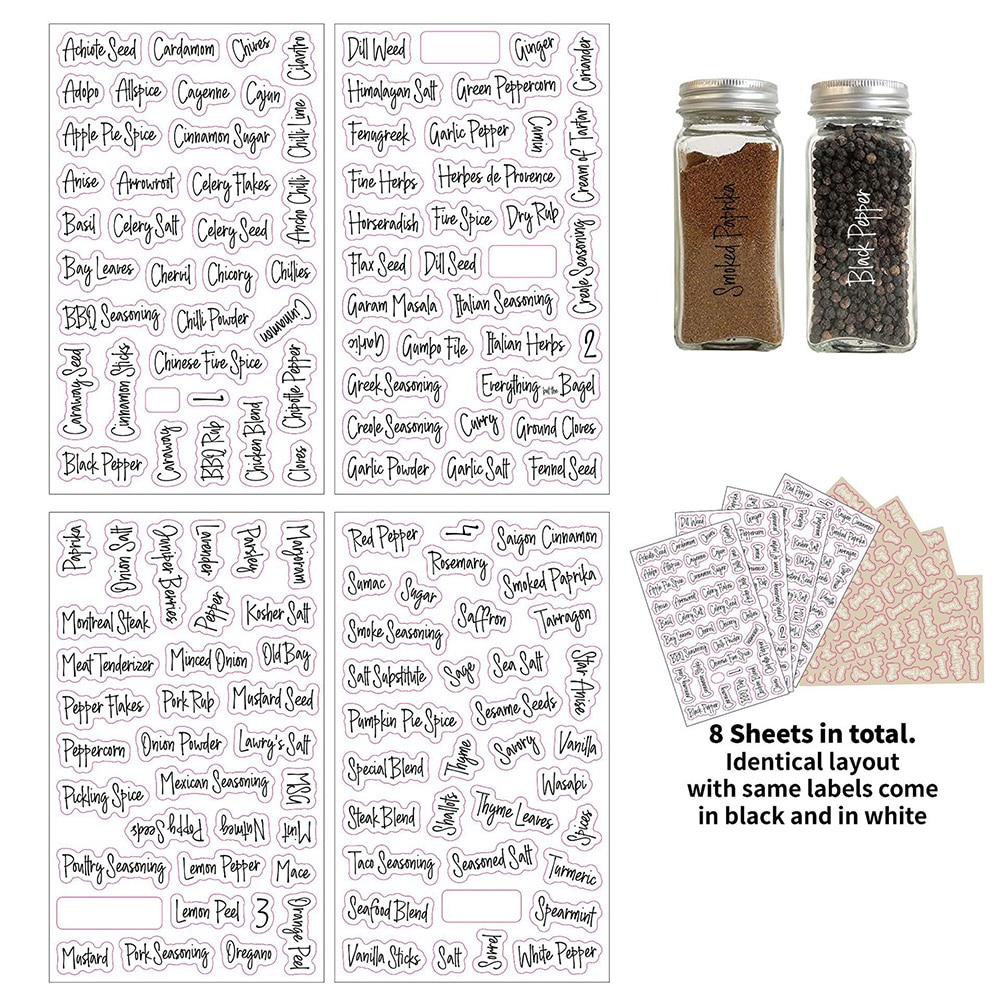 Achiote Seed
Cardamom
Chives
Cilantro
Adobo
Allspice
Cayenne
Cajun
Chilli Lime
Apple Pie Spice
Cinnamon Sugar
Anise
Arrowroot
Celery Flakes
Ancho Chilli
Basil
Celery Salt
Celery Seed
Bay Leaves
Chervil
Chicory
Chillies
BBQ Seasoning
Chilli Powder
Cinnamon
Caraway Seed
Cinnamon Sticks
Chinese Five Spice
Chipotle Pepper
1
Black Pepper
Caraway
BBQ Rup
Chicken Blend
Cloves
Dill Weed
Ginger
Coriander
Himalayan Salt
Green Peppercorn
Fenugreek
Garlic Pepper
Cumin
Cream of Tartar
Fine Herbs
Herbes de Provence
Horseradish
Five Spice
Dry Rub
Creole Seasoning
Flax Seed
Dill Seed
Garam Masala
Italian Seasoning
Garlic
Gumbo File
Italian Herbs
2
Greek Seasoning
Everything but the Bagel
Creole Seasoning
Curry
Ground Cloves
Garlic Powder
Garlic Salt
Fennel Seed
Paprika
Onion Salt
Juniper Berries
Lavender
Parsley
Marjoram
Montreal Steak
Pepper
Kosher Salt
Meat Tenderizer
Minced Onion
Old Bay
Pepper Flakes
Pork Rub
Mustard Seed
Peppercorn
Onion Powder
Lawry's Salt
Pickling Spice
Mexican Seasoning
MSG
Poppy Seeds
Nutmeg
Mint
Poultry Seasoning
Lemon Pepper
Mace
Lemon Peel
3
Orange Peel
Mustard
Pork Seasoning
Oregano
Red Pepper
4
Saigon Cinnamon
Rosemary
Sumac
Sugar
Smoked Paprika
Smoke Seasoning
Saffron
Tarragon
Salt Substitute
Sage
Sea Salt
Star Anise
Pumpkin Pie Spice
Sesame Seeds
Special Blend
Thyme
Savory
Vanilla
Wasabi
Steak Blend
Shallots
Thyme Leaves
Spices
Taco Seasoning
Seasoned Salt
Turmeric
Seafood Blend
Spearmint
Vanilla Sticks
Salt
Sorrel
White Pepper
Smoked Paprika
Black Pepper
8 Sheets in total.
Identical layout
with same labels come
in black and in white